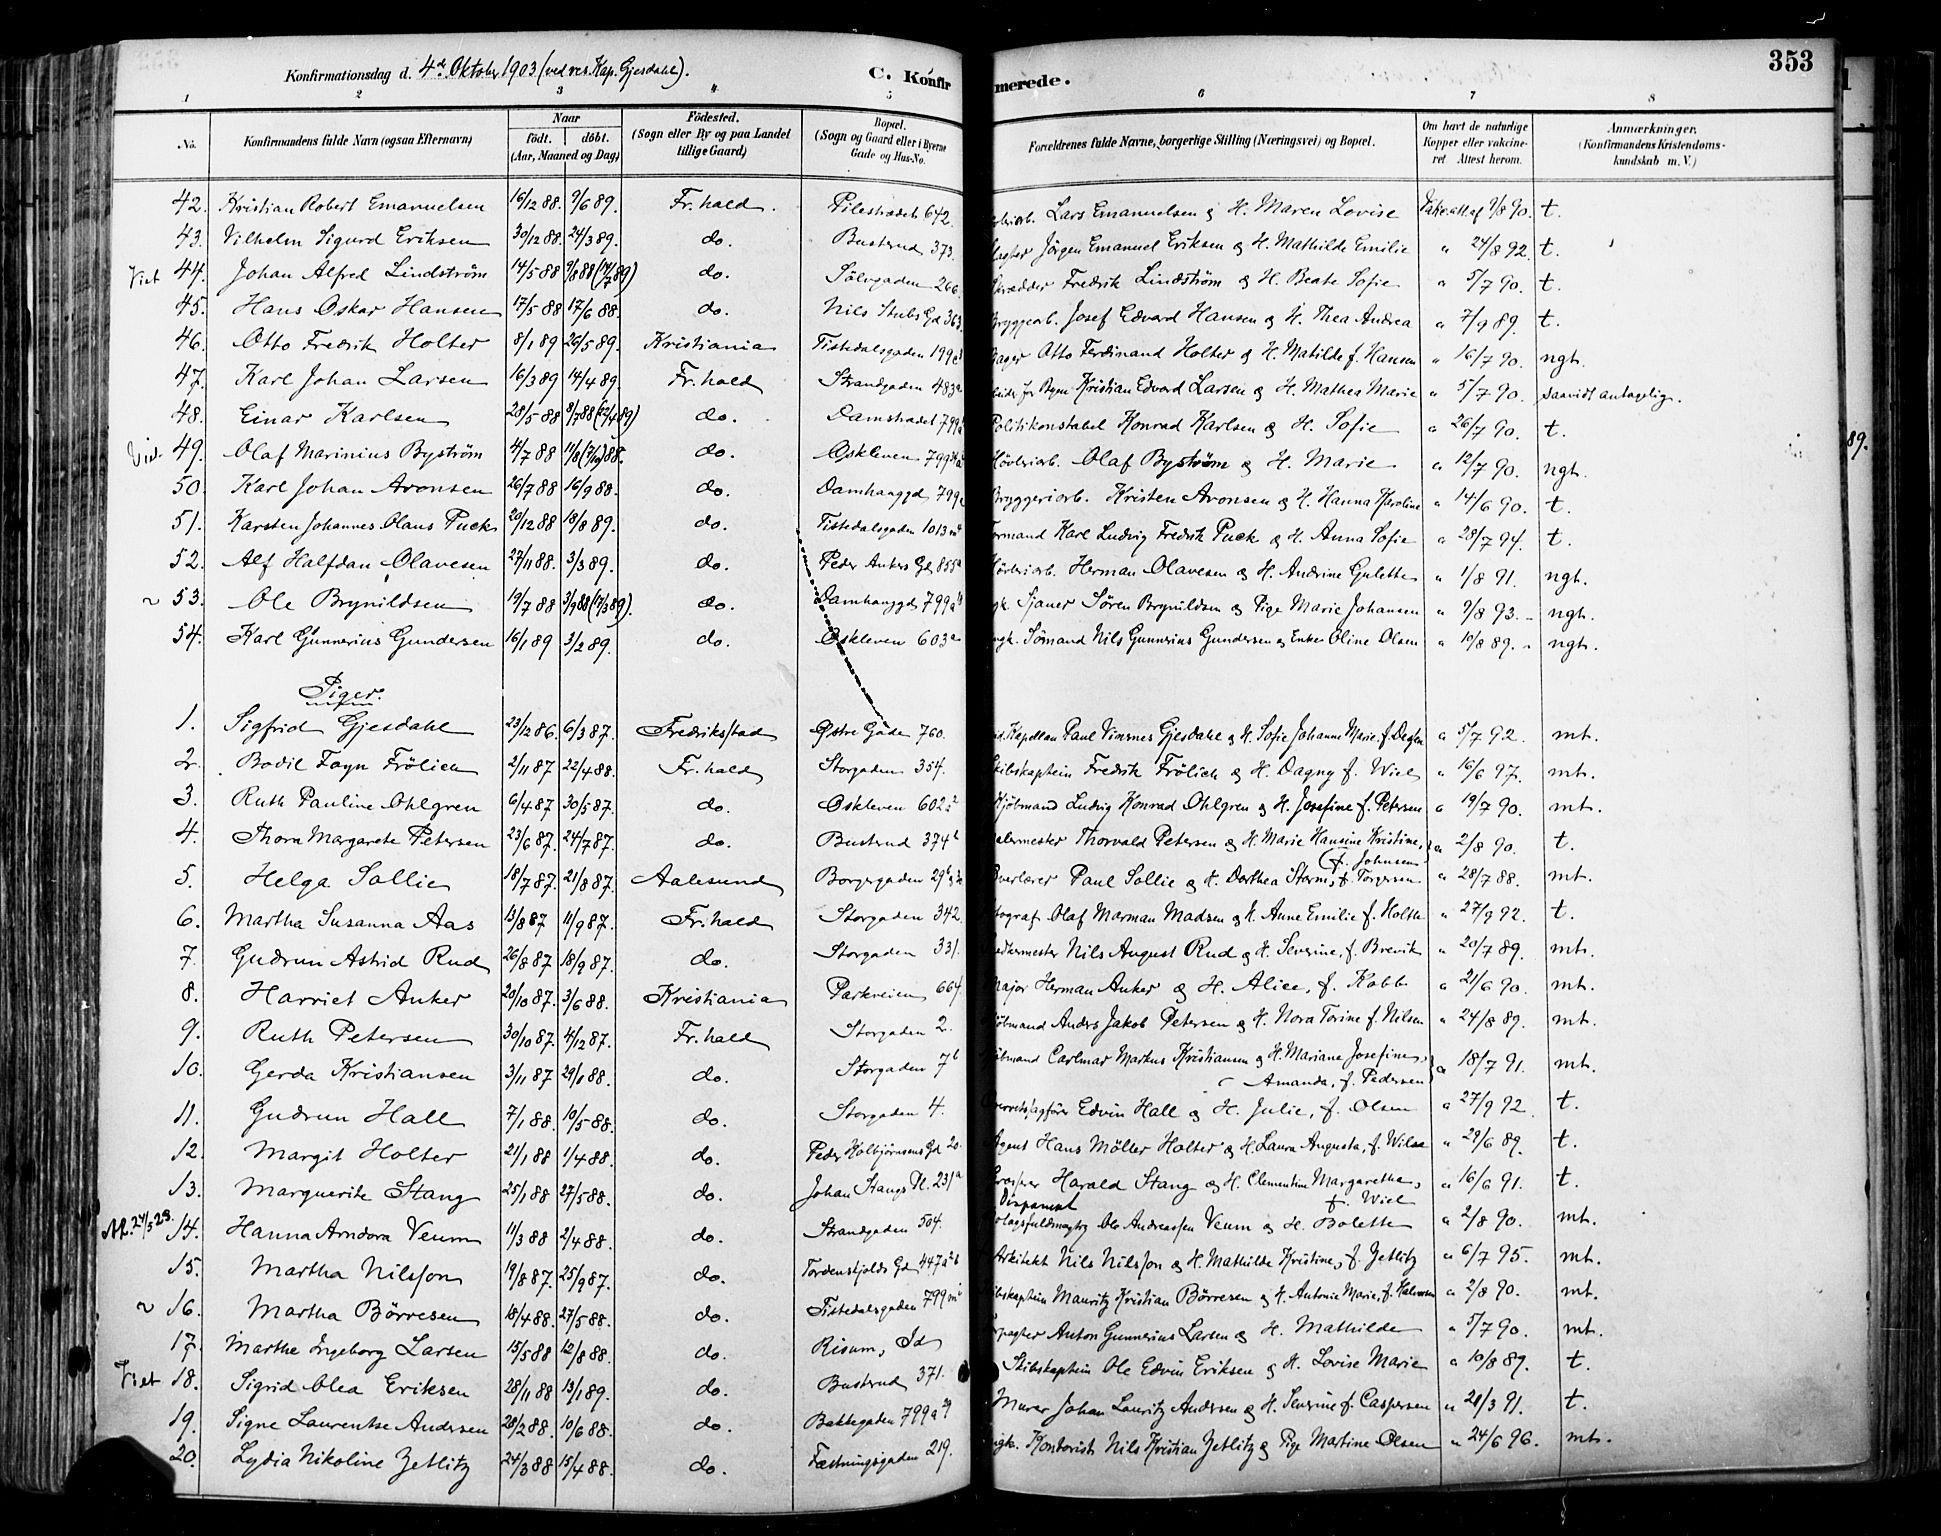 353
Konfirmationsdag d. 4de Oktober 1903 (ved res. Kap. Gjesdahl). C. Konfir merede.
1 2 3 4 5 6 7 8
No. Konfirmandens fulde Navn (ogsaa Efternavn) Naar født. døbt. (Aar, Maaned og Dag) Fødested. (Sogn eller By og paa Landet tillige Gaard) Bopæl. (Sogn og Gaard eller i Byerne Gade og Hus-No. Forældrenes fulde Navne, borgerlige Stilling (Næringsvei) og Bopæl. Om havt de naturlige Kopper eller vakcineret Attest herom. Anmærkninger. (Konfirmandens Kristendomskundskab m. V.)
42. Kristian Robert Emanuelsen 16/12 88. 9/6 89. Fr.hald. Pilestrædet 642. Lars Emanuelsen & H. Maren Lovise 9/8 90. t.
43. Vilhelm Sigurd Eriksen 30/12 88. 24/3 89. do. Busterud 373. Jörgen Emanuel Eriksen & H. Mathilde Emilie " 24/8 92. t.
44. Johan Alfred Lindström 14/5 88 9/8 88 (14/7 89) do. Sølvgaden 266. Skrædder Fredrik Lindström & H. Beate Sofie " 5/7 90. t.
45. Hans Oskar Hansen 17/5 88 17/6 88. do. Nils Stubs Gd 363. Bryggearb. Josef Edvard Hansen & H. Thea Andrea " 7/9 89. t.
46. Otto Fredrik Holter 8/1 89 26/5 89. Kristiania Tistedalsgaden 199 Otto Ferdinand Holter & H. Matilde f. Hansen " 16/7 90. ngt.
47. Karl Johan Larsen 16/3 89 14/4 89. Fr.hald Strandgaden 483a Kristian Edvard Larsen & H. Mathea Marie " 5/7 90. saavidt antagelig.
48. Einar Karlsen 28/5 88 8/7 88 (22/4 89) do. Damstrædet 799 Politikonstabel Konrad Karlsen & H. Sofie " 26/7 90. t.
49. Olaf Marinius Byström 4/7 88 11/8 (7/10) 88. do. Oskleven 799 Høvleriarb. Olaf Byström & H. Marie " 12/7 90. ngt.
50. Karl Johan Aronsen 26/7 88 16/9 88. do. Damhauggd 799 Bryggeriarb. Kristen Aronsen & H. Hanna Karoline " 14/6 90. t.
51. Karsten Johannes Olaus Puck 20/12 88 18/8 89. do. Tistedalsgaden 1013 Formand Karl Ludvig Fredrik Puck & H. Anna Sofie " 28/7 94. t.
52. Alf Halfdan Olavesen 27/11 88. 3/3 89. do. Peder Ankers Gd 855a Høvleriarb. Herman Olavesen & H. Andrine Gulette " 1/8 91. ngt.
~ 53. Ole Brynildsen 19/7 88 3/9 88 (17/3 89). do. Damhauggd 799a Sjauer Søren Brynildsen & Pige Marie Johansen " 9/8 93. ngt.
54. Karl Gunnerius Gundersen 16/1 89 3/2 89. do. Oskleven 603a Sømand Nils Gunnerius Gundersen & Enke Oline Olsen " 10/8 89. ngt.
Piger.
1. Sigfrid Gjesdahl 23/12 86. 6/3 87. Fredriksstad Østre Gade 760. Kapellan Paul Vinsnes Gjesdahl & H. Sofie Johanne Marie f. " 5/7 92. mt.
2. Bodil Fayn Frölich 2/11 87 22/4 88. Fr.hald Storgaden 354. Skibskaptein Fredrik Frölich & H. Dagny f. Wiel " 16/6 97. mt.
3. Ruth Pauline Ohlgren 6/4 87 30/5 87. do. Oskleven 602 Kjøbmand Ludvig Konrad Ohlgren & H. Josefine f. Petersen " 19/7 90. mt.
4. Thora Margarete Petersen 23/6 87. 24/7 87. do. Busterud 374b Malermester Thorvald Petersen & H. Marie Hansine Kristine, f. Johnsen " 2/8 90. t.
5. Helga Sollie 18/7 87. 21/8 87. Aalesund Borgergaden 29 Overlærer Paul Sollie & H. Dorthea Storm, f. Torgersen " 28/7 88. mt.
6. Martha Susanna Aas 13/8 87 11/9 87. Fr.hald Storgaden 342. Fotograf Olaf Marman Madsen & H. Anne Emilie f. Holth " 27/9 92. t.
7. Gudrun Astrid Rud 26/8 87 18/9 87. do. Storgaden 331. Nils August Rud & H. Severine, f. Brevik " 20/7 89. mt.
8. Harriet Anker 20/10 87. 3/6 88. Kristiania Parkveien 664. Major Herman Anker & H. Alice, f. Kobb " 21/6 90. mt.
9. Ruth Petersen 30/10 87. 4/12 87. Fr.hald Storgaden 2. Kjøbmand Anders Jakob Petersen & H. Nora Torine f. Nilsen " 24/8 89. mt.
10. Gerda Kristiansen 3/11 87 29/1 88. do. Storgaden 7b Kjøbmand Carlmar Markus Kristiansen & H. Mariane Josefine Amanda, f. Pedersen " 18/7 91. mt.
11. Gudrun Hall 7/1 88. 10/5 88. do. Storgaden 4. Overretssagfører Edvin Hall & H. Julie, f. Olsen " 27/9 92. t.
12. Margit Holter 21/1 88 1/4 88. do. Peder Kolbjørnsens Gd 20. Agent Hans Möller Holter & H. Laura Augusta, f. Wilse " 29/6 89. t.
13. Marguerite Stang 25/1 88 27/5 88. do. Johan Stangs Pl. 231a Harald Stang & H. Clementine Margarethe, f. Wiel " 16/6 91. t.
14. Hanna Arndora Veum 11/3 88 2/4 88. do. Strandgaden 504. Disponent Ole Andreassen Veum & H. Bolette " 2/8 90. mt.
15. Martha Nilsson 19/8 87. 25/9 87. do. Tordenskjolds Gd 447 Arkitekt Nils Nilsson & H. Mathilde Kristine, f. Zetlitz " 6/7 95. mt.
~ 16. Martha Börresen 18/4 88. 27/5 88. do. Tistedalsgaden 799 Skibskaptein Mauritz Kristian Börresen & H. Antonie Marie, f. Halvorsen " 2/8 90. mt.
17. Marthe Ingeborg Larsen 15/5 88 12/8 88. do. Risum, Id Forpagter Anton Gunnerius Larsen & H. Mathilde " 5/7 90. mt.
18. Sigrid Olea Eriksen 28/11 88 13/1 89. do. Busterud 371. Skibskaptein Ole Edvin Eriksen & H. Lovise Marie " 10/8 89. t.
19. Signe Laurentse Andersen 28/2 88. 10/6 88. do. Bakkegaden 799a Murer Johan Lauritz Andersen & H. Severine f. Caspersen " 21/3 91. t.
20. Lydia Nikoline Zetlitz 24/3 88 15/4 88. do. Fæstningsgaden 219. Kontorist Nils Kristian Zetlitz & Pige Martine Olsen " 24/6 96. mt.
89.